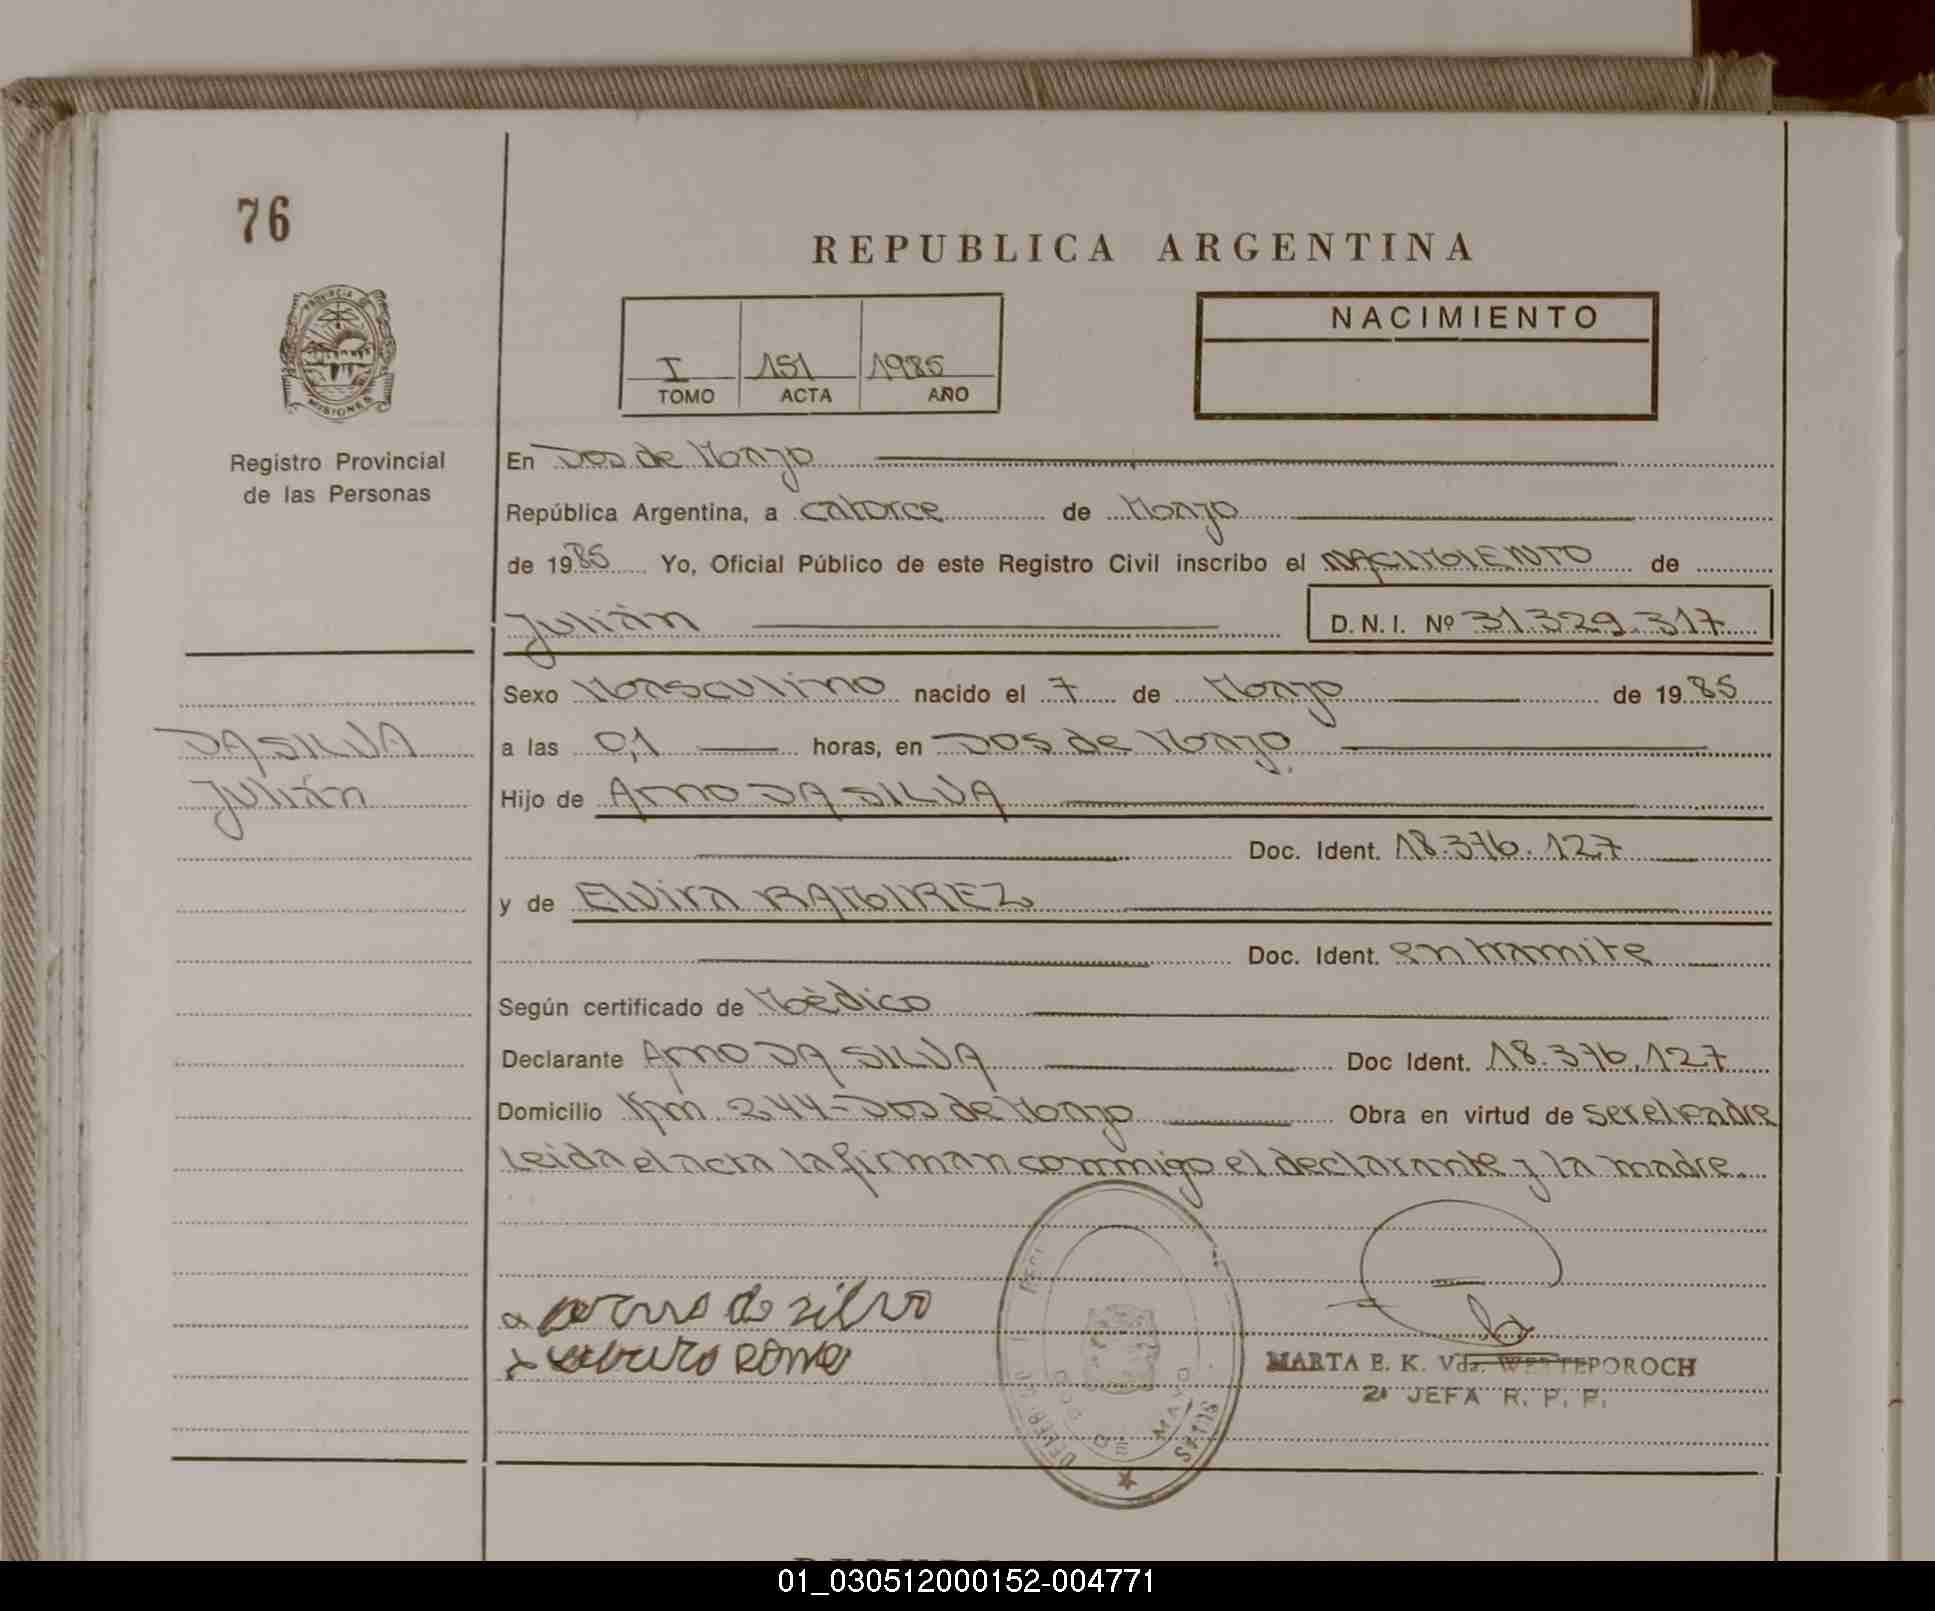 76
REPUBLICA ARGENTINA
PROVINCIA DE
MISIONES
Registro Provincial
de las Personas
I 151 1985
TOMO ACTA AÑO
NACIMIENTO
En Dos de Mayo
República Argentina, a catorce de Marzo
de 1985 Yo, Oficial Público de este Registro Civil inscribo el NACIMIENTO de
Julián D.N.I. Nº 31.329.317
Sexo Masculino nacido el 7 de Marzo de 1985
DA SILVA
Julián
a las 0,1 horas, en Dos de Mayo
Hijo de Arno DA SILVA
Doc. Ident. 18.376.127
y de Elvira RAMIREZ
Doc. Ident. en tramite
Según certificado de Médico
Declarante Arno DA SILVA Doc Ident. 18.376.127
Domicilio Km 244-Dos de Mayo Obra en virtud de ser el Padre
Leida el acta la firman commigo el declarante y la madre.
MARTA E. K. Vda.
2ª JEFA R. P. P.
DOS DE MAYO
01_030512000152-004771